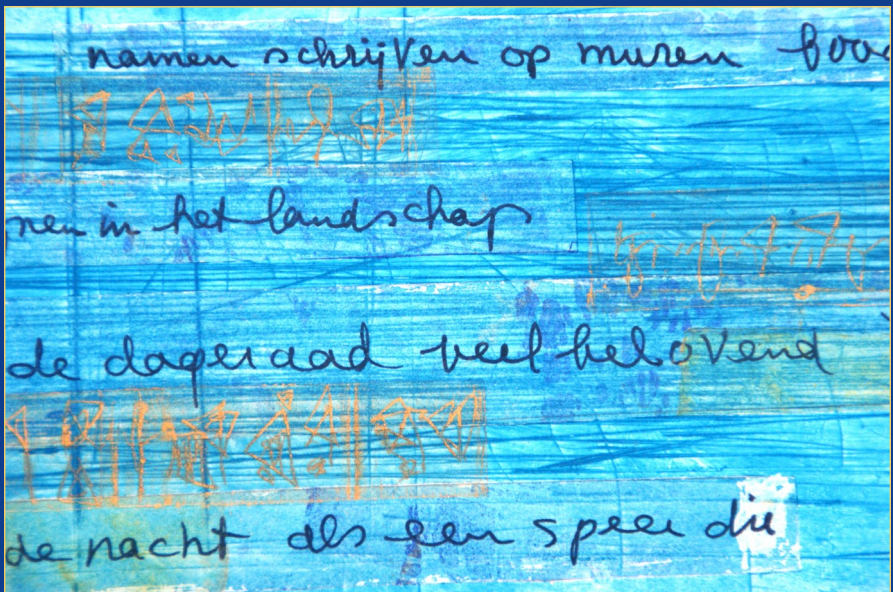 namen schrijven op muren
nen in het landschap
de dageraad veel belovend
de nacht als een speer die